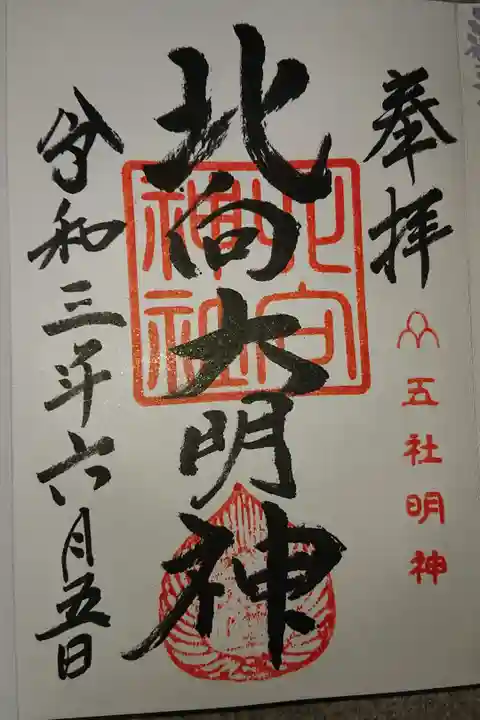 奉拝
五社明神
北向大明神
北向神社
令和三年六月五日